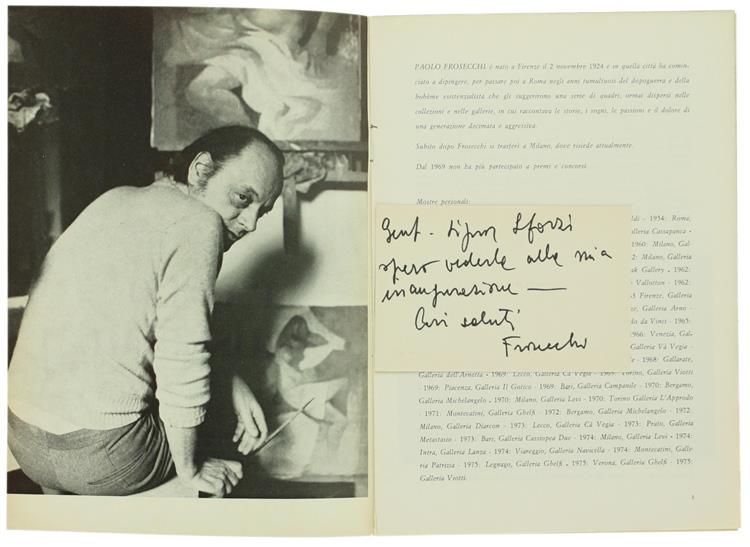 PAOLO FROSECCHI è nato a Firenze il 2 novembre 1924 e in quella città ha comin-
ciato a dipingere, per passare poi a Roma negli anni tumultuosi del dopoguerra e della
bohème esistenzialista che gli suggerirono una serie di quadri, ormai dispersi nelle
collezioni e nelle gallerie, in cui raccontava le storie, i sogni, le passioni e il dolore di
una generazione decimata e aggressiva.
Subito dopo Frosecchi si trasferì a Milano, dove risiede attualmente.
Dal 1969 non ha più partecipato a premi e concorsi
Mostre personali:
Gent. Signor Sforzi
spero vederla alla mia
inaugurazione —
Cari saluti
Frosecchi
ldi - 1954: Roma,
alleria Cassapanca -
1960: Milano, Gal-
2: Milano, Galleria
ak Gallery - 1962:
Vallotton - 1962:
3 Firenze, Galleria
ze, Galleria Arno -
do da Vinci - 1965:
1966: Venezia, Gal-
Galleria Cà Vegia -
e - 1968: Gallarate,
Galleria dell'Arnetta - 1969: Lecco, Galleria Cà Vegia - 1969: Torino, Galleria Viotti
- 1969: Piacenza, Galleria Il Gotico - 1969: Bari, Galleria Campanile - 1970: Bergamo,
Galleria Michelangelo - 1970: Milano, Galleria Levi - 1970: Torino Galleria L'Approdo
- 1971: Montecatini, Galleria Ghelfi - 1972: Bergamo, Galleria Michelangelo - 1972:
Milano, Galleria Diarcon - 1973: Lecco, Galleria Cà Vegia - 1973: Prato, Galleria
Metastasio - 1973: Bari, Galleria Cassiopea Due - 1974: Milano, Galleria Levi - 1974:
Intra, Galleria Lanza - 1974: Viareggio, Galleria Navicella - 1974: Montecatini, Galle-
ria Patrizia - 1975: Legnago, Galleria Ghelfi - 1975: Verona, Galleria Ghelfi - 1975:
Galleria Viotti.